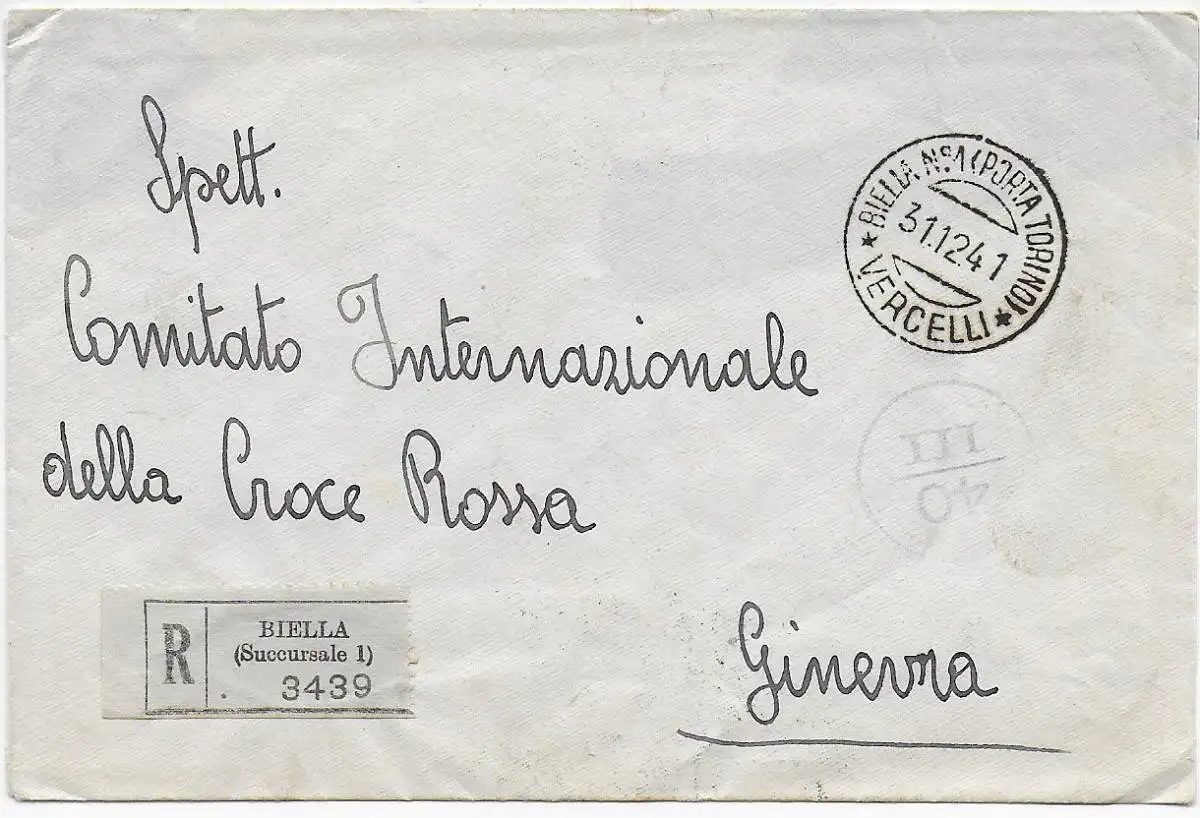 Spett.
Comitato Internazionale
della Croce Rossa
Ginevra
BIELLA Nº1 (PORTA TORINO)
31.12.41
VERCELLI
III
40
R
BIELLA
(Succursale 1)
3439